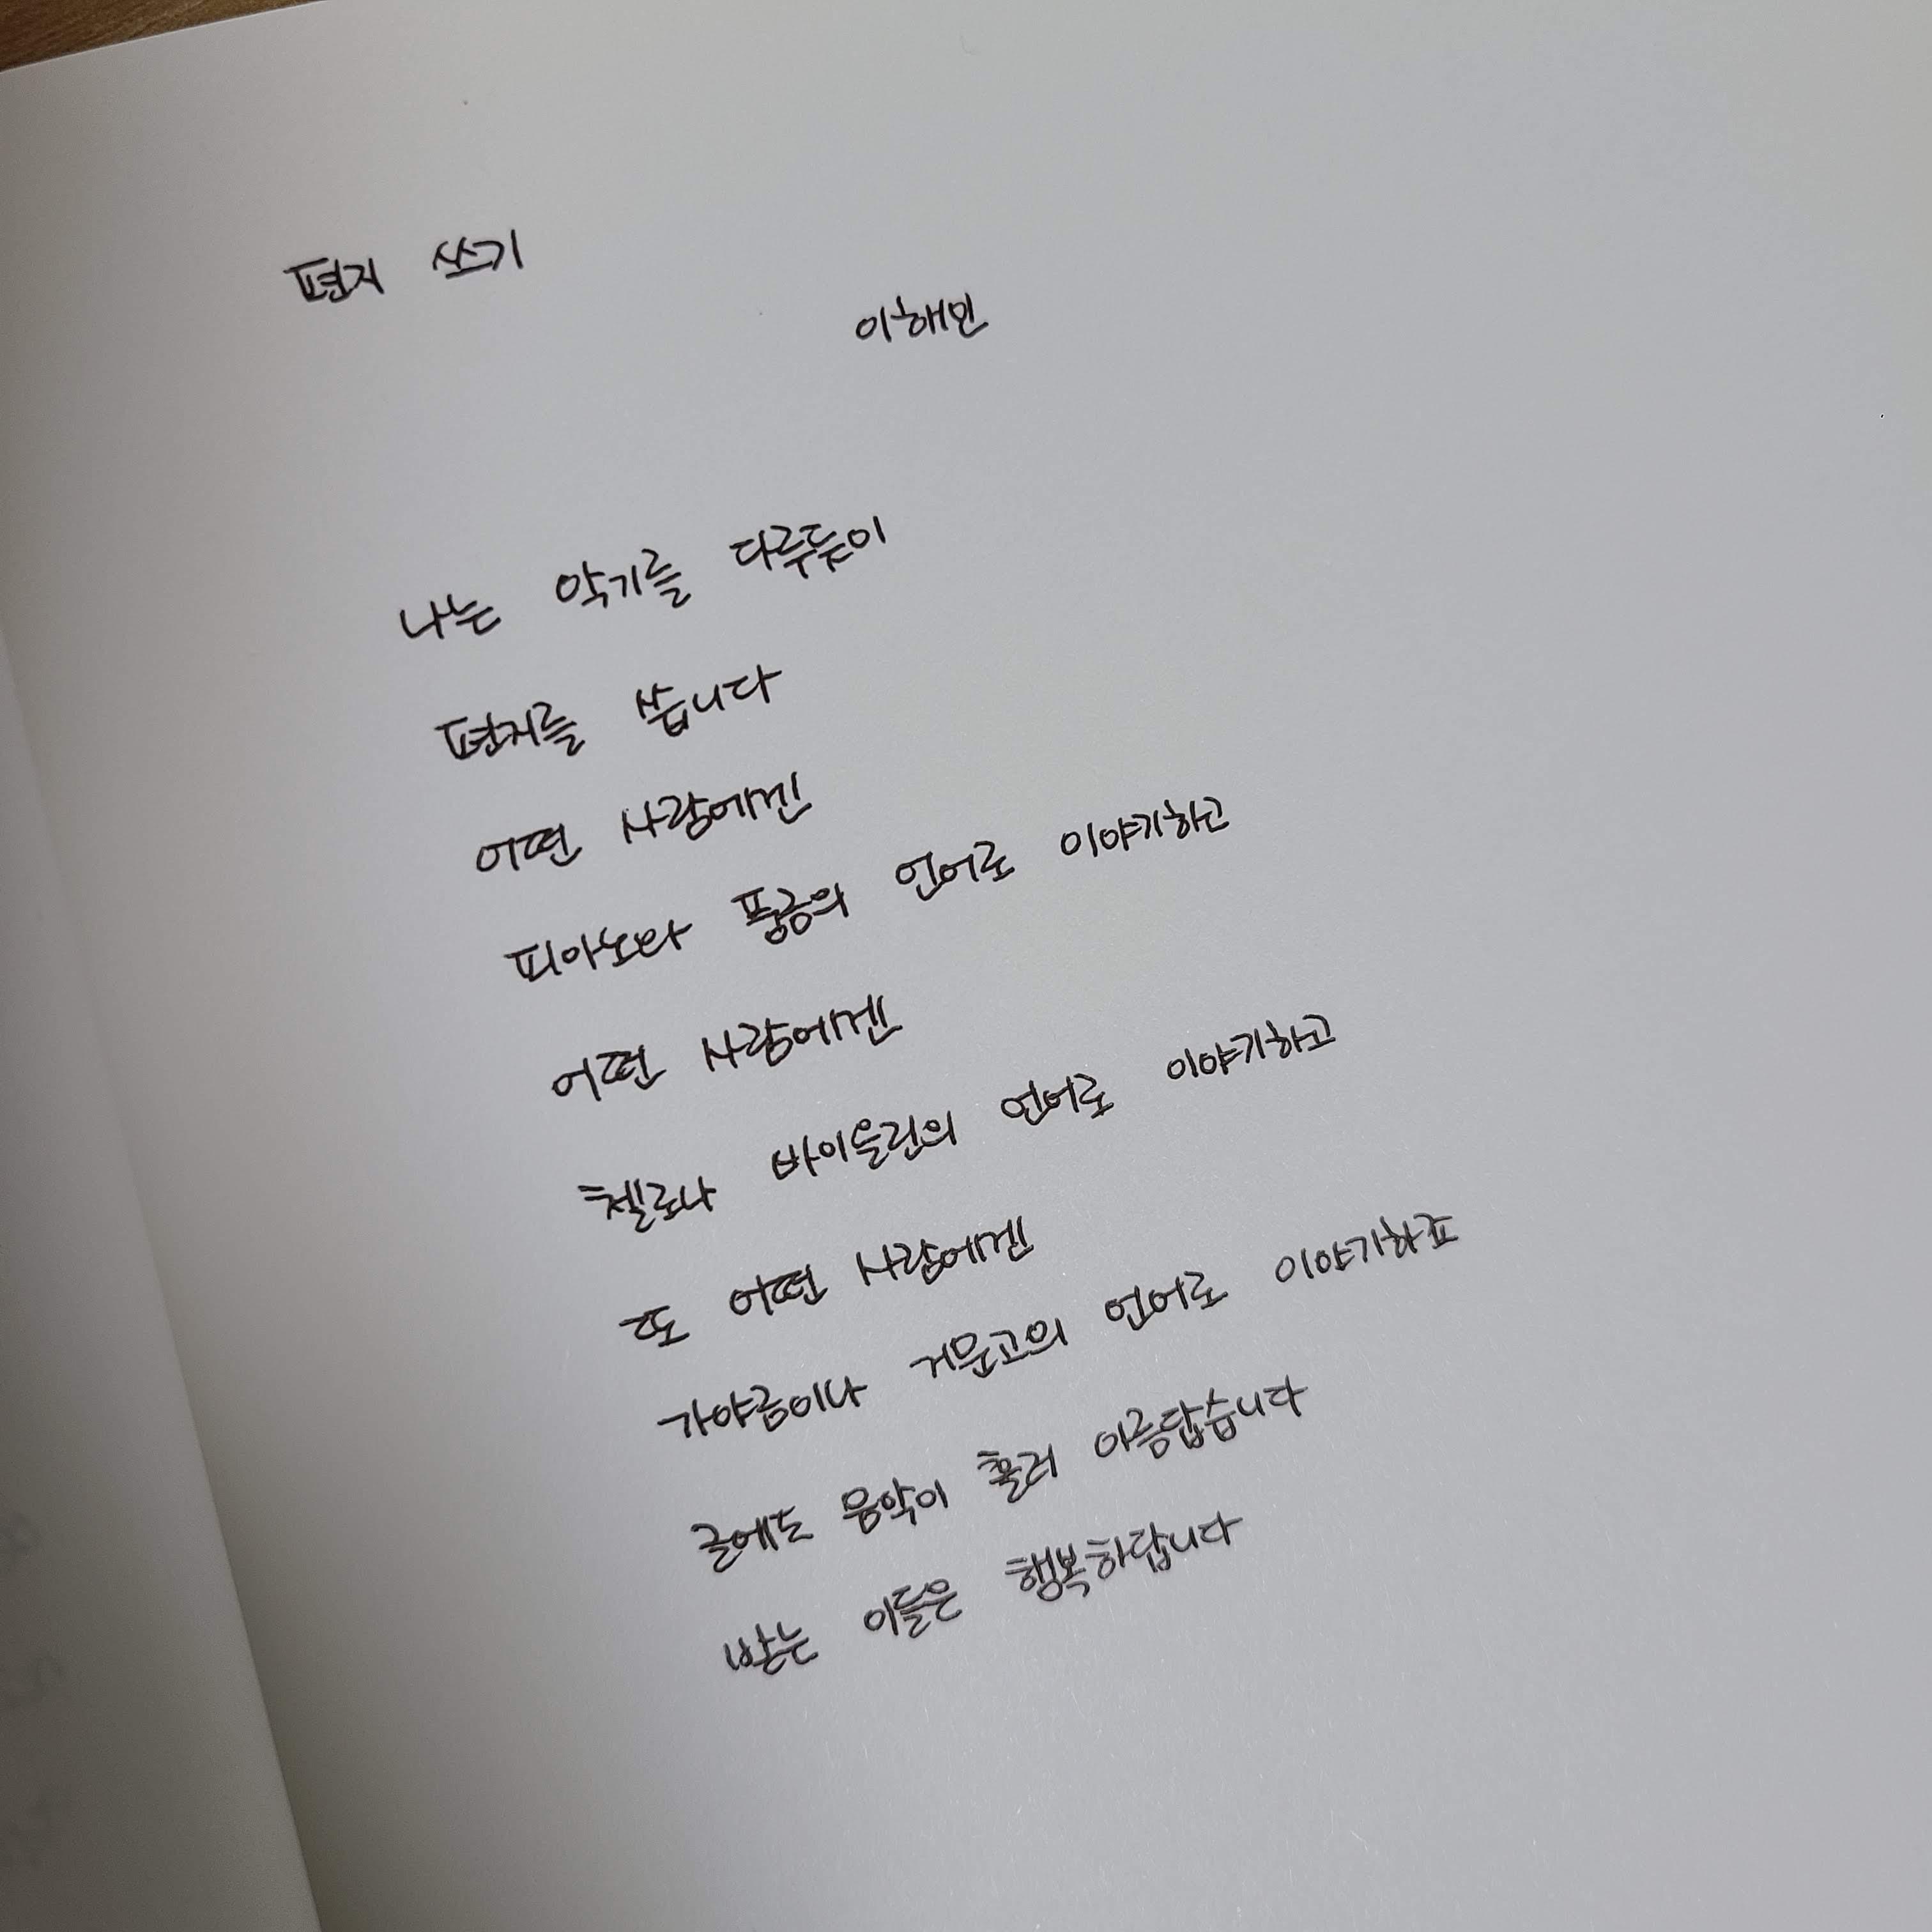 편지 쓰기
이해인
나는 악기를 다루듯이
편지를 씁니다
어떤 사람에겐
피아노와 풍금의 언어로 이야기하고
어떤 사람에겐
첼로나 바이올린의 언어로 이야기하고
또 어떤 사람에겐
가야금이나 거문고의 언어로 이야기하죠
글에도 음악이 흘러 아름답습니다
받는 이들은 행복하답니다